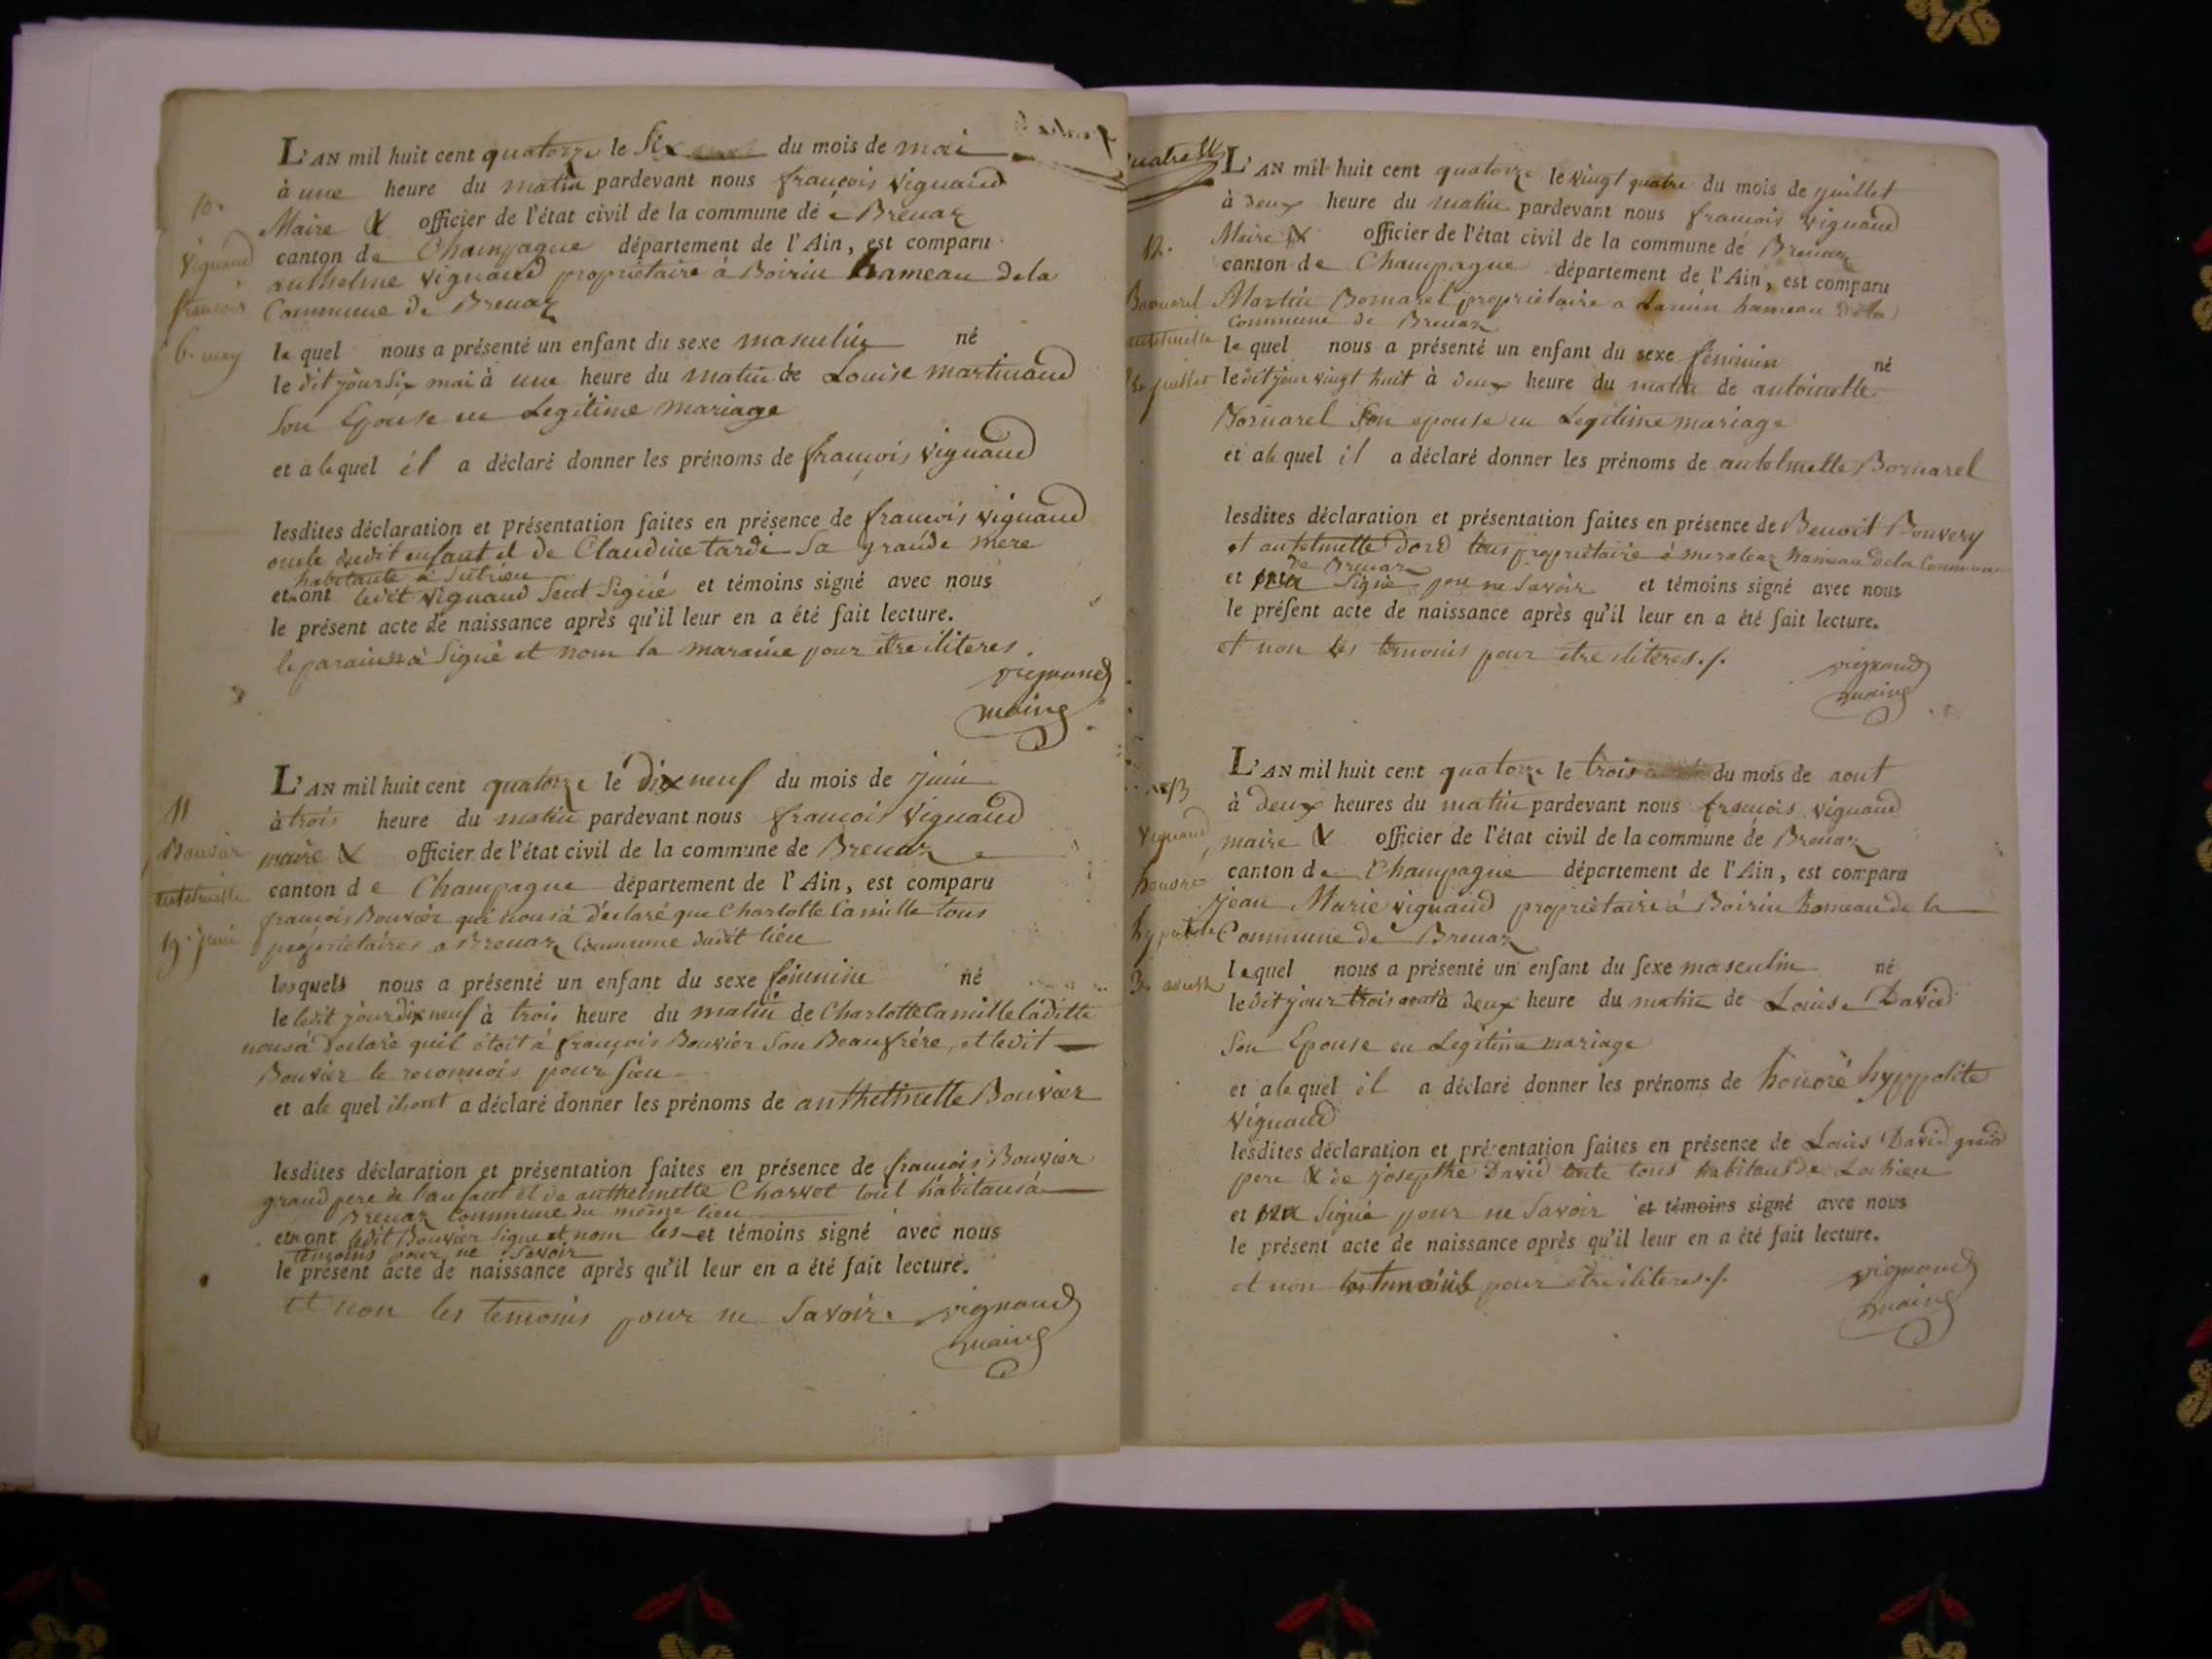 L'AN mil huit cent quatorze le six du mois de mai
à une heure du matin pardevant nous françois vignaud
Maire & officier de l'état civil de la commune de Brenaz
canton de Champagne département de l'Ain, est comparu
anthelme vignaud propriétaire à Boirin hameau dela
Commune de Brenaz
10.
vignaud
françois
6. may
le quel nous a présenté un enfant du sexe masculin né
le dit jour six mai à une heure du matin de Louise martinaud
son Epouse en Legitime mariage
et alequel il a déclaré donner les prénoms de françois vignaud
lesdites déclaration et présentation faites en présence de françois vignaud
oncle dudit enfant et de Claudine tardi sa grande mere
habitante à Sutrieu
et ont ledit vignaud seul signé et témoins signé avec nous
le présent acte de naissance après qu'il leur en a été fait lecture.
le parain a signé et nom la maraine pour etre iliteres.
vignaud
maire
L'AN mil huit cent quatorze le dix neuf du mois de juin
à trois heure du matin pardevant nous françois vignaud
maire & officier de l'état civil de la commune de Brenaz
canton de Champagne département de l'Ain, est comparu
françois Bouvier qui nous a déclaré que Charlotte Camille tous
propriétaires a Brenaz Commune dudit lieu
11
Bouvier
antelmette
19. juin
lesquels nous a présenté un enfant du sexe féminine né
le ledit jour dix neuf à trois heure du matin de Charlotte Camille laditte
nous a déclaré quil étoit à françois Bouvier son Beaufrére, et ledit
Bouvier le reconnois pour sien
et ale quel ils ont a déclaré donner les prénoms de anthelmette Bouvier
lesdites déclaration et présentation faites en présence de françois Bouvier
grand pere de l'anfant et de anthelmette Charvet tout habitans à
Brenaz Commune du même lieu
et ont ledit Bouvier signe et nom les et témoins signé avec nous
temoins pour ne savoir
le présent acte de naissance après qu'il leur en a été fait lecture.
et non les temoins pour ne savoir. vignaud
maire
L'AN mil huit cent quatorze le vingt quatre du mois de juillet
à deux heure du matin pardevant nous françois vignaud
Maire & officier de l'état civil de la commune de Brenaz
canton de Champagne département de l'Ain, est comparu
Martin Bornarel propriétaire a hameau dela
Commune de Brenaz
12.
Bornarel
antelmette
juillet
le quel nous a présenté un enfant du sexe féminin né
ledit jour vingt huit à deux heure du matin de antoinette
Bornarel son epouse en Legitime mariage
et ale quel il a déclaré donner les prénoms de antelmette Bornarel
lesdites déclaration et présentation faites en présence de Benoit Bouvery
et antelmette tous propriétaire à hameau dela Commune
de Brenaz
et signé pou ne savoir et témoins signé avec nous
le présent acte de naissance après qu'il leur en a été fait lecture.
et non les temonis pour etre iliteres./.
vignaud
maire
L'AN mil huit cent quatorze le trois du mois de aout
à deux heures du matin pardevant nous françois vignaud
maire & officier de l'état civil de la commune de Brenaz
canton de Champagne département de l'Ain, est comparu
jean Marie vignaud propriétaire à Boirin hameau de la
Commune de Brenaz
13
vignaud
honoré
3. aoust
lequel nous a présenté un enfant du sexe masculin né
ledit jour trois aout à deux heure du matin de Louise David
son Epouse en Legitime mariage
et alequel il a déclaré donner les prénoms de honoré hyppolite
vignaud
lesdites déclaration et présentation faites en présence de Louis David grand
pere & de josepthe David tente tous habitans de Lochieu
et signé pour ne savoir et témoins signé avec nous
le présent acte de naissance après qu'il leur en a été fait lecture.
et non les temoins pour être iliteres./.
vignaud
maire